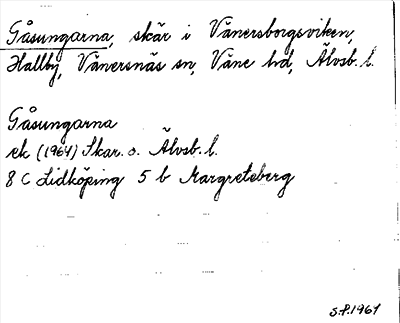 Gåsungarna, skär i Vänersborgsviken,
Hallby, Vänersnäs sn, Väne hd, Älvsb. l.
Gåsungarna
ek (1964) Skar. o. Älvsb. l.
8 C Lidköping 5 b Margreteberg
S.P. 1967